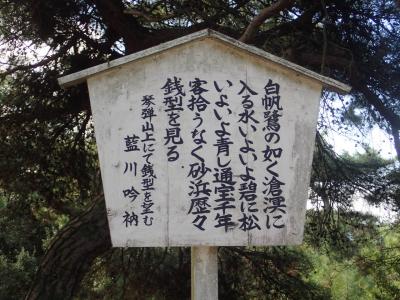 白帆鷺の如く滄溟に
入る水いよいよ碧に松
いよいよ青し通宝千年
客拾うなく砂浜歴々
銭型を見る
琴弾山上にて銭型を望む
藍川吟衲